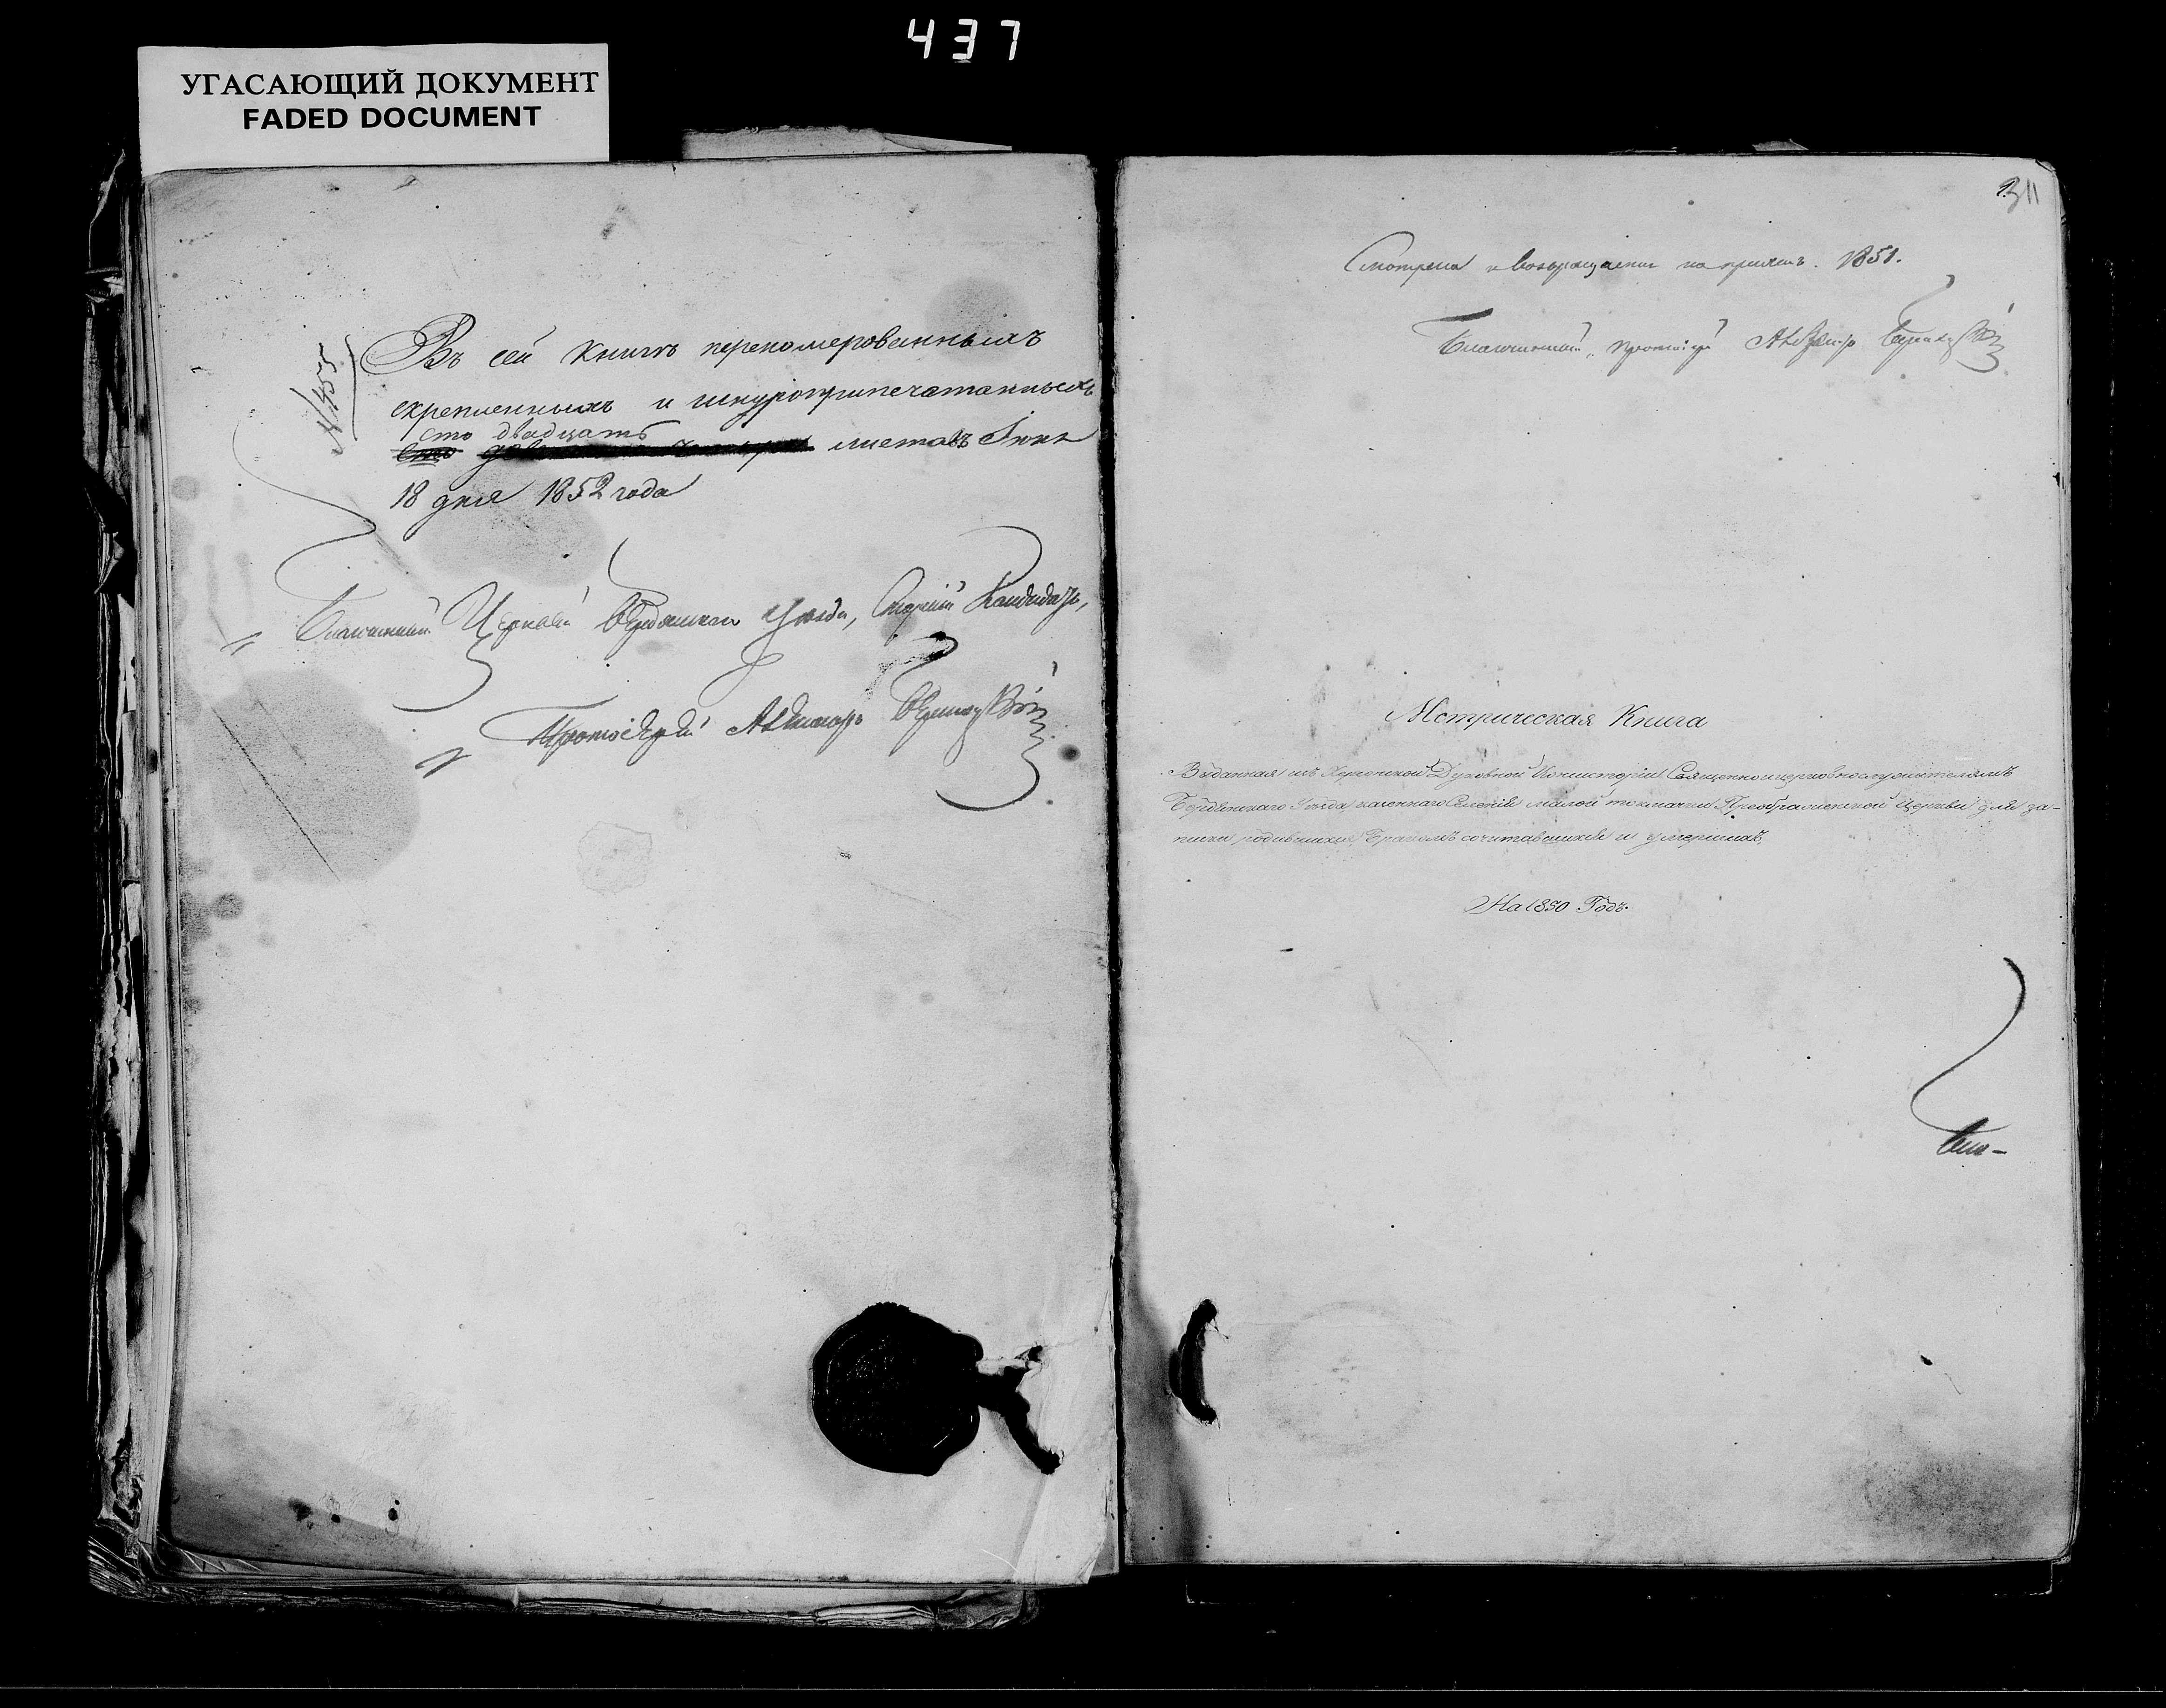 437
УГАСАЮЩИЙ ДОКУМЕНТ
FADED DOCUMENT
№ 455
Въ сей книгѣ переномерованныхъ
скрепленныхъ и шнуроприпечатанныхъ
сто двадцать
сто листовъ Іюня
18 дня 1852 года
Благочинный Церквей Бердянскаго Уѣзда, Старшій Кандидатъ,
Протоіерей
311
Смотрена и возвращена 1851.
Благочинный, Протоіерей
Метрическая Книга
Выданная изъ Херсонской Духовной Консисторіи Священноцерковнослужителямъ
Бердянскаго Уѣзда казеннаго Селенія малой токмачки Преображенской Церкви для за-
писки родившихся, Бракомъ сочитавшихся и умершихъ,
На 1850 Годъ.